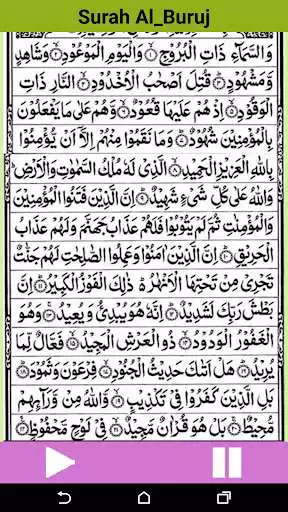 Surah Al_Buruj
وَالسَّمَآءِ ذَاتِ الۡبُرُوۡجِ ۙ﴿۱﴾ وَالۡيَوۡمِ الۡمَوۡعُوۡدِ ۙ﴿۲﴾ وَشَاهِدٍ
وَّمَشۡهُوۡدٍ ؕ﴿۳﴾ قُتِلَ اَصۡحٰبُ الۡاُخۡدُوۡدِ ۙ﴿۴﴾ النَّارِ ذَاتِ
الۡوَقُوۡدِ ۙ﴿۵﴾ اِذۡ هُمۡ عَلَيۡهَا قُعُوۡدٌ ۙ﴿۶﴾ وَّهُمۡ عَلٰى مَا يَفۡعَلُوۡنَ
بِالۡمُؤۡمِنِيۡنَ شُهُوۡدٌ ؕ﴿۷﴾ وَمَا نَقَمُوۡا مِنۡهُمۡ اِلَّاۤ اَنۡ يُّؤۡمِنُوۡا
بِاللّٰهِ الۡعَزِيۡزِ الۡحَمِيۡدِ ۙ﴿۸﴾ الَّذِىۡ لَهٗ مُلۡكُ السَّمٰوٰتِ وَالۡاَرۡضِ ؕ
وَاللّٰهُ عَلٰى كُلِّ شَىۡءٍ شَهِيۡدٌ ؕ﴿۹﴾ اِنَّ الَّذِيۡنَ فَتَنُوا الۡمُؤۡمِنِيۡنَ
وَالۡمُؤۡمِنٰتِ ثُمَّ لَمۡ يَتُوۡبُوۡا فَلَهُمۡ عَذَابُ جَهَنَّمَ وَلَهُمۡ عَذَابُ
الۡحَرِيۡقِ ؕ﴿۱۰﴾ اِنَّ الَّذِيۡنَ اٰمَنُوۡا وَعَمِلُوا الصّٰلِحٰتِ لَهُمۡ جَنّٰتٌ
تَجۡرِىۡ مِنۡ تَحۡتِهَا الۡاَنۡهٰرُ ؕ ذٰلِكَ الۡفَوۡزُ الۡكَبِيۡرُ ؕ﴿۱۱﴾ اِنَّ
بَطۡشَ رَبِّكَ لَشَدِيۡدٌ ؕ﴿۱۲﴾ اِنَّهٗ هُوَ يُبۡدِئُ وَيُعِيۡدُ ۚ﴿۱۳﴾ وَهُوَ
الۡغَفُوۡرُ الۡوَدُوۡدُ ۙ﴿۱۴﴾ ذُو الۡعَرۡشِ الۡمَجِيۡدُ ۙ﴿۱۵﴾ فَعَّالٌ لِّمَا
يُرِيۡدُ ؕ﴿۱۶﴾ هَلۡ اَتٰٮكَ حَدِيۡثُ الۡجُنُوۡدِ ۙ﴿۱۷﴾ فِرۡعَوۡنَ وَثَمُوۡدَ ؕ﴿۱۸﴾
بَلِ الَّذِيۡنَ كَفَرُوۡا فِىۡ تَكۡذِيۡبٍ ۙ﴿۱۹﴾ وَّاللّٰهُ مِنۡ وَّرَآئِهِمۡ
مُّحِيۡطٌ ۚ﴿۲۰﴾ بَلۡ هُوَ قُرۡاٰنٌ مَّجِيۡدٌ ۙ﴿۲۱﴾ فِىۡ لَوۡحٍ مَّحۡفُوۡظٍ ﴿۲۲﴾